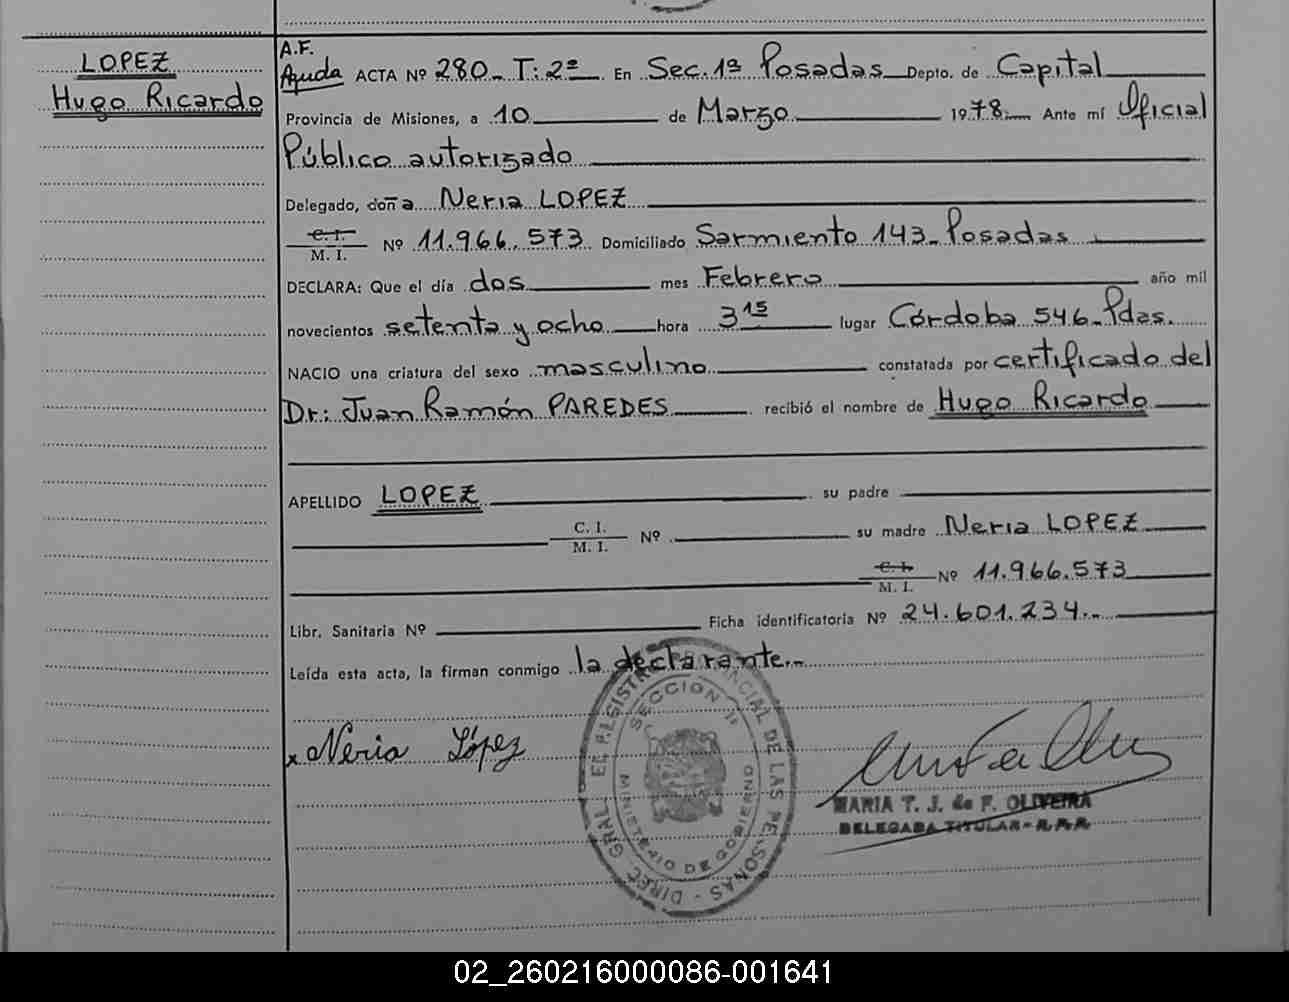 LOPEZ
Hugo Ricardo
A.F.
Ayuda ACTA Nº 280_ T: 2º En Sec. 1ª Posadas Depto. de Capital
Provincia de Misiones, a 10 de Marzo 1978 Ante mí Oficial
Público autorizado
Delegado, doña Neria LOPEZ
C. I.
M. I. Nº 11.966.573 Domiciliado Sarmiento 143_ Posadas
DECLARA: Que el día dos mes Febrero año mil
novecientos setenta y ocho hora 3 15 lugar Córdoba 546_Pdas.
NACIO una criatura del sexo masculino constatada por certificado del
Dr.: Juan Ramón PAREDES recibió el nombre de Hugo Ricardo
APELLIDO LOPEZ su padre
C. I.
M. I. Nº su madre Neria LOPEZ
C. I.
M. I. Nº 11.966.573
Libr. Sanitaria Nº Ficha identificatoria Nº 24.601.234._
Leída esta acta, la firman conmigo la declarante._
x Neria López
DIREC. GRAL. DEL REGISTRO PROVINCIAL DE LAS PERSONAS
SECCION 1ª
MINISTERIO DE GOBIERNO
MARIA T. J. de F. OLIVEIRA
DELEGADA TITULAR - R.P.P.
02_260216000086-001641